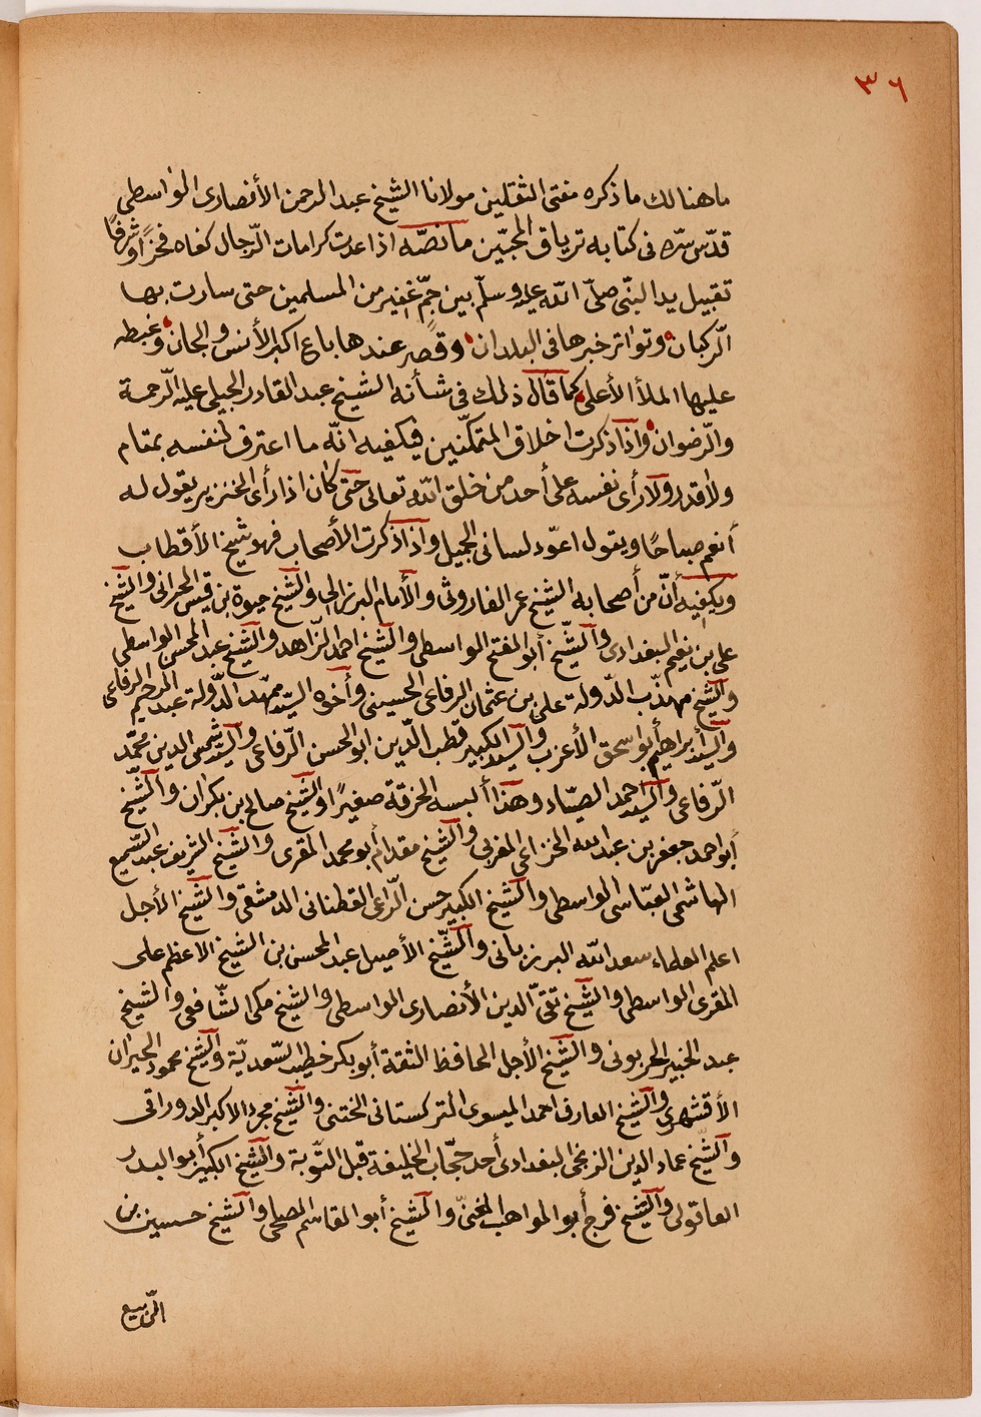 ٣٦
ما هنالك ما ذكره مفتى الثقلين مولانا الشيخ عبد الرحمن الأنصارى الواسطى
قدّس سرّه فى كتابه ترياق المحبّين ما نصّه اذا عدت كرامات الرّجال كفاه فخرًا وشرفًا
تقبيل يد النبّى صلّى الله عليه وسلّم بين جمّ غفير من المسلمين حتى سارت بها
الرّكبان وتواتر خبرها فى البلدان وقصر عندها باع اكبر الأنس والجان وغبطه
عليها الملأ الأعلى كما قال ذلك فى شأنه الشيخ عبد القادر الجيلى عليه الرّحمة
والرّضوان واذا ذكرت اخلاق المتمكّنين فيكفيه انّه ما اعترف لنفسه بمقام
ولا قدر ولا رأى نفسه على أحد من خلق الله تعالى حتى كان اذا رأى الخنزير يقول له
أنعم صباحًا ويقول اعوّد لسانى الجميل واذا ذكرت الأصحاب فهو شيخ الأقطاب
ويكفيه أنّ من أصحابه الشيخ عمر الفاروثى والأمام البرزالى والشيخ حيوة بن قيس الحرانى والشيخ
على بن نعيم البغدادى والشّيخ أبو الفتح الواسطى والشيخ احمد الزّاهد والشيخ عبد المحسن الواسطى
والشيخ مهذّب الدّولة على بن عثمان الرفاعى الحسينى وأخوه السيّد ممهّد الدّولة عبد الرحيم الرفاعى
والسيّد أبراهيم أبو اسحق الأعزب والسيّد الكبير قطب الدّين ابو الحسن الرّفاعى والسيّد شمس الدين محمّد
الرّفاعى والسيّد احمد الصيّاد وهذا ألبسه الخرقة صغيرًا والشيخ صالح بن بكران والشّيخ
أبو احمد جعفر بن عبد الله الخزاعى المغربى والشيخ مقدام أبو محمد المقرى والشيخ الشريف عبد السّميع
الهاشمى العبّاسى الواسطى والشيخ الكبير حسن الرّاعى القطنانى الدمشقى والشيخ الأجل
اعلم العلماء سعد الله البرزبانى والشّيخ الأصيل عبد المحسن بن الشيخ الاعظم على
المقرى الواسطى والشيخ تقىّ الدين الأنصارى الواسطى والشيخ مكى الشّافعى والشيخ
عبد الخبير الحربونى والشيخ الأجل الحافظ الثقة أبو بكر خطيب السّعديّة والشيخ محمود الحيران
الأقشهرى والشيخ العارف احمد اليسوى التركستانى الختنى والشيخ مجرد الاكبر الدوراتى
والشّيخ عماد الدين الزنجى البغدادى أحد حجّاب الخليفة قبل التّوبة والشيخ الكبير أبو البدر
العاقولى والشيخ فرج أبو المواهب والشيخ أبو القاسم المصلى والشيخ حسين بن
الرّبيع